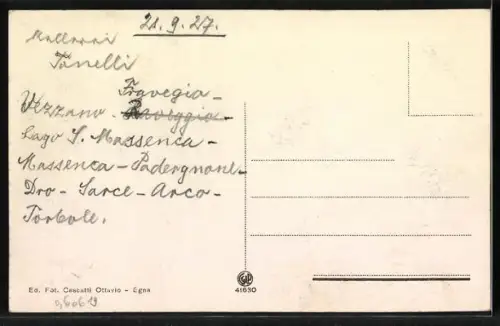 21.9.27.
Molveni
Tonelli
Fravegia -
Vezzano - Raveggia -
Lago S. Massenca -
Massenca - Padergnone -
Dro - Sarce - Arco -
Torbole.
Ed. Fot. Cescatti Ottavio - Egna
41630
36619